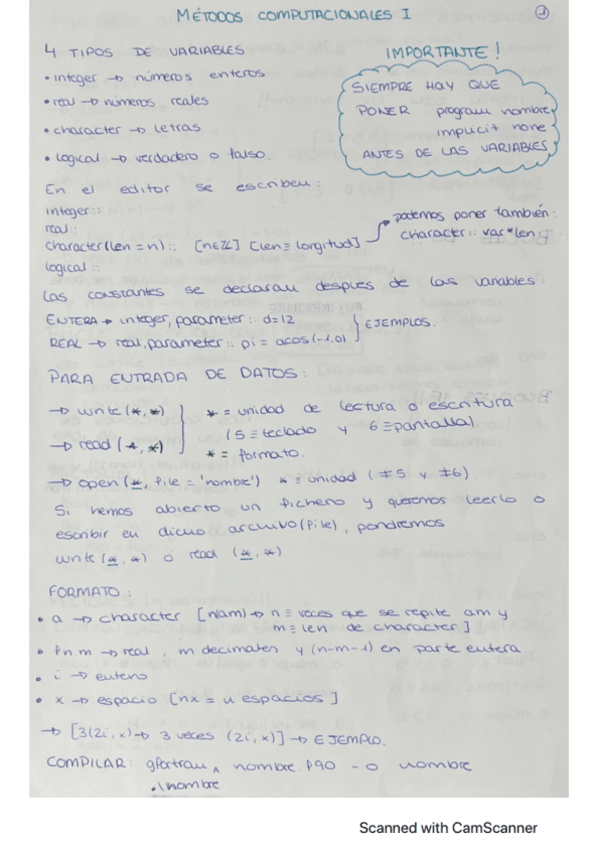 MÉTODOS COMPUTACIONALES I
1
4 TIPOS DE VARIABLES
• integer → números enteros
• real → números reales
• character → letras
• logical → verdadero o falso.
IMPORTANTE!
SIEMPRE HAY QUE
PONER program nombre
implicit none
ANTES DE LAS VARIABLES
En el editor se escriben:
integer ::
real ::
character(len = n) :: [n∈ℤ] [len ≡ longitud]
logical ::
podemos poner también:
character :: var*len
Las constantes se declaran después de las variables:
ENTERA → integer, parameter :: d=12
REAL → real, parameter :: pi = acos(-1.0)
EJEMPLOS.
PARA ENTRADA DE DATOS:
→ write (*, *)
→ read (*, *)
* = unidad de lectura o escritura
(5 ≡ teclado y 6 ≡ pantalla)
* = formato.
→ open (*, file = 'nombre') * = unidad (≠5 y ≠6)
Si hemos abierto un fichero y queremos leerlo o
escribir en dicho archivo (file), pondremos
write (*, *) o read (*, *)
FORMATO:
• a → character [nam] → n ≡ veces que se repite am y
m ≡ len de character]
• fn.m → real, m decimales y (n-m-1) en parte entera.
• i → entero
• x → espacio [nx = n espacios]
→ [3(2i, x) → 3 veces (2i, x)] → EJEMPLO.
COMPILAR: gfortran ^ nombre.f90 -o nombre
.\nombre
Scanned with CamScanner